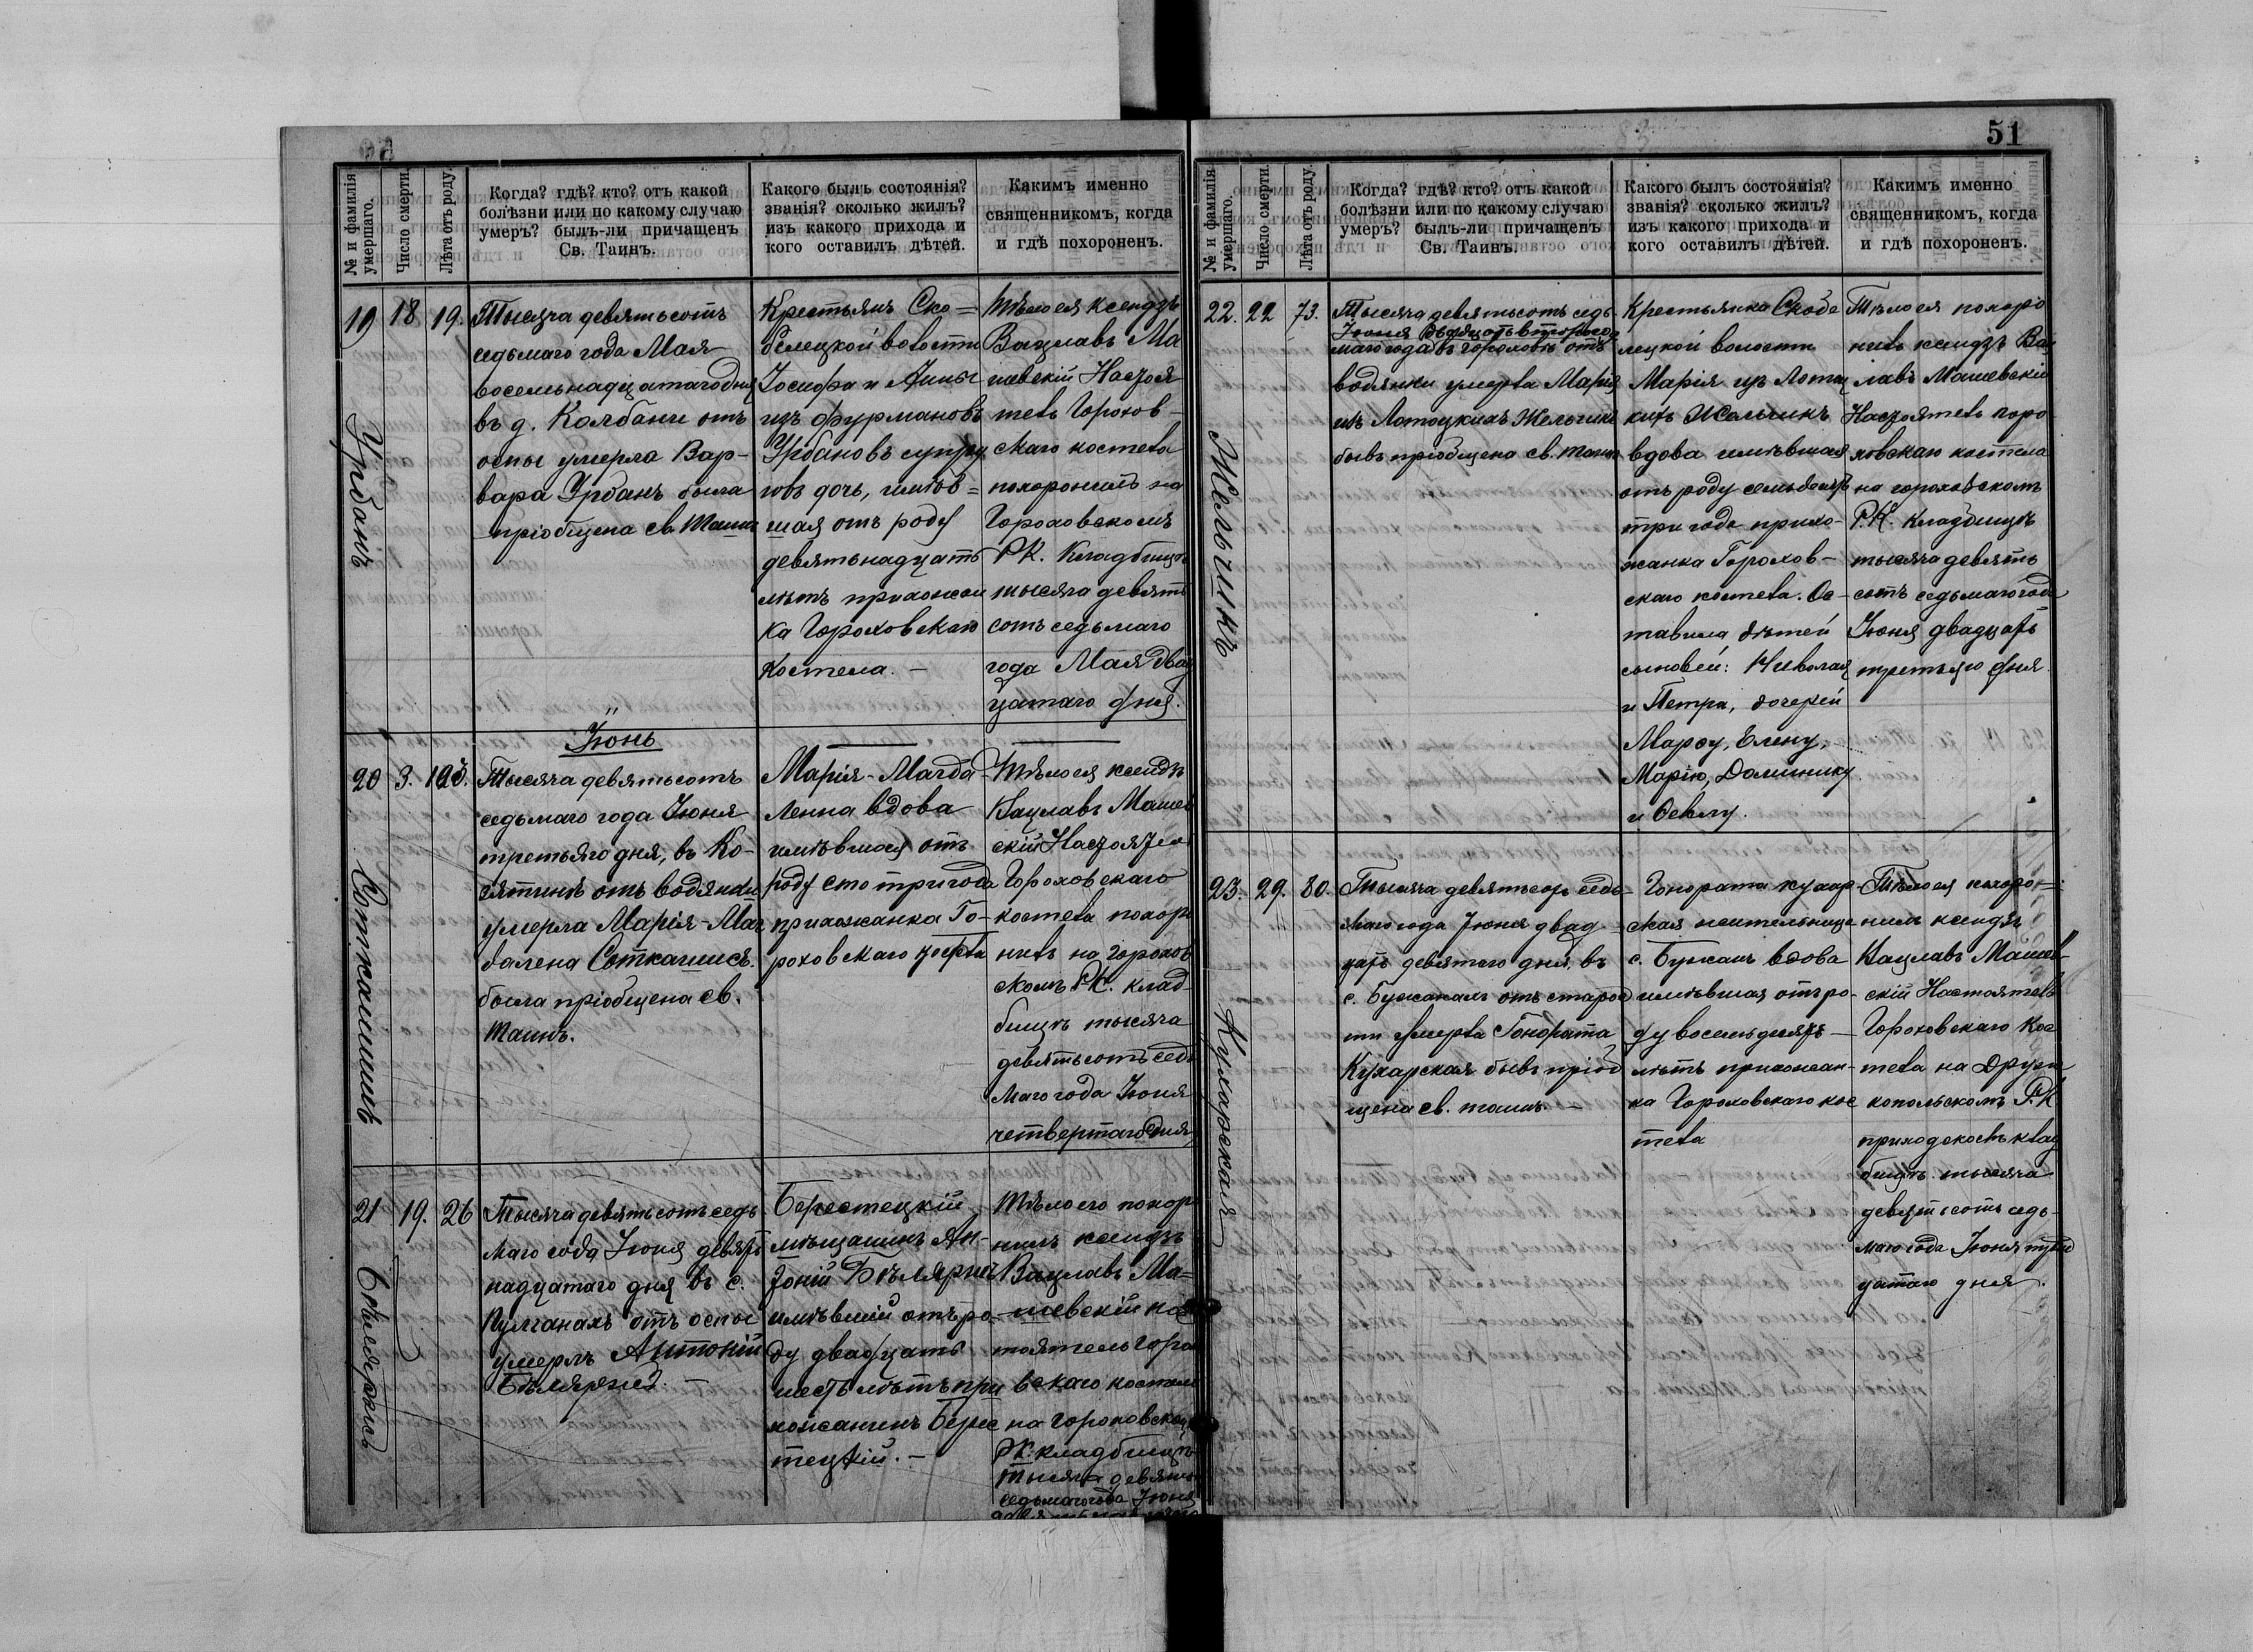 № и фамилія умершаго.
Число смерти.
Лѣта отъ роду.
Когда? гдѣ? кто? отъ какой
болѣзни или по какому случаю
умеръ? былъ-ли причащенъ
Св. Таинъ.
Какого былъ состоянія?
званія? сколько жилъ?
изъ какого прихода и
кого оставилъ дѣтей.
Какимъ именно
священникомъ, когда
и гдѣ похороненъ.
19
Урбанъ
18
19.
Тысяча девятьсотъ
седьмаго года Мая
восемьнадцатаго дня
въ д. Колбани отъ
оспы умерла Вар-
вара Урбанъ была
пріобщена св. Таинъ
Крестьянъ Ско=
белецкой волости
Іосифа и Анны
изъ фурмановъ
Урбановъ супру
говъ дочь, имѣв=
шая отъ роду
девятьнадцать
лѣтъ прихожан
ка Гороховскаго
костела. –
Тѣло ея ксендзъ
Вацлавъ Ма
шевскій Настоя
тель Горохов-
скаго костела
похоронилъ на
Гороховскомъ
РК. Кладбищѣ
тысяча девять
сотъ седьмаго
года Мая двад
цатаго дня.
Іюнь
20
Соткашишъ
3.
103.
Тысяча девятьсотъ
седьмаго года Іюня
третьяго дня, въ Ко-
сятинѣ отъ водянки
умерла Марія-Маг
далена Соткашисъ.
была пріобщена св.
Таинъ.
Марія-Магда-
лена вдова
имѣвшая отъ
роду сто три года
прихожанка Го-
роховскаго костела
Тѣло ея ксендзъ
Вацлавъ Машев
скій Настоятель
Гороховскаго
костела похоро
нилъ на Горохов
скомъ РК. клад
бищѣ тысяча
девятьсотъ седь
маго года Іюня
четвертаго дня
21
19.
26
Тысяча девятьсотъ седь
маго года Іюня девять
надцатаго дня въ с.
отъ оспы
умеръ Антоній
Берестецкій
мѣщанинъ Ан-
тоній
имѣвшій отъ ро-
ду двадцать
шесть лѣтъ при
хожанинъ Берес
тецкій. –
Тѣло его похоро
нилъ ксендзъ
Вацлавъ Ма=
шевскій нас
тоятель Горо
вскаго костела
на Гороховскомъ
РК. кладбищѣ
тысяча девять
седьмаго года Іюня
51
№ и фамилія умершаго.
Число смерти.
Лѣта отъ роду.
Когда? гдѣ? кто? отъ какой
болѣзни или по какому случаю
умеръ? былъ-ли причащенъ
Св. Таинъ.
Какого былъ состоянія?
званія? сколько жилъ?
изъ какого прихода и
кого оставилъ дѣтей.
Какимъ именно
священникомъ, когда
и гдѣ похороненъ.
22.
Жельчикъ
22
73.
Тысяча девятьсотъ седь-
Іюня двадцать втораго
маго года въ Гороховѣ отъ
водянки умерла Марія
изъ Лотоцкихъ Жельчикъ
бывъ пріобщена св. таинъ
Крестьянка Скобе
лецкой волости
Марія изъ Лотоц
кихъ Жельчикъ
вдова имѣвшая
отъ роду семьдесятъ
три года прихо-
жанка Горохов-
скаго костела. Ос-
тавила дѣтей
сыновей: Николая
и Петра, дочерей
Марѳу, Елену,
Марію, Доминику
и Ѳеклу.
Тѣло ея похоро
нилъ ксендзъ Вац
лавъ Машевскій
Настоятель Горо
ховскаго костела
на гороховскомъ
Р.К. кладбищѣ
тысяча девять
сотъ седьмаго года
Іюня двадцать
третьяго дня.
23.
Кухарская
29.
80.
Тысяча девятьсотъ седь-
маго года Іюня двад-
цать девятаго дня, въ
с. Бужанахъ отъ старос
ти умерла Гонората
Кухарская бывъ пріоб
щена св. таинъ. –
Гонората кухар-
ская жительница
с. Бужанъ вдова
имѣвшая отъ ро-
ду восемьдесятъ –
лѣтъ прихожан-
ка Гороховскаго кос
тела
Тѣло ея похоро=
нилъ ксендзъ
Вацлавъ Машев-
скій Настоятель
Гороховскаго кос
тела на Друж
копольскомъ Р.К
приходскомъ клад
бищѣ тысяча
девятьсотъ седь-
маго года Іюня трид
цатаго дня.